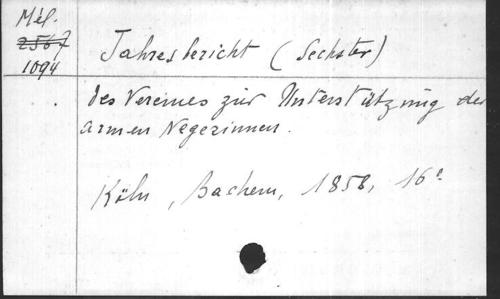 Mél.
2567
1094
Jahresbericht (Sechster)
des Vereines zur Unterstützung der
armen Negerinnen.
Köln, Bachem, 1858, 16°